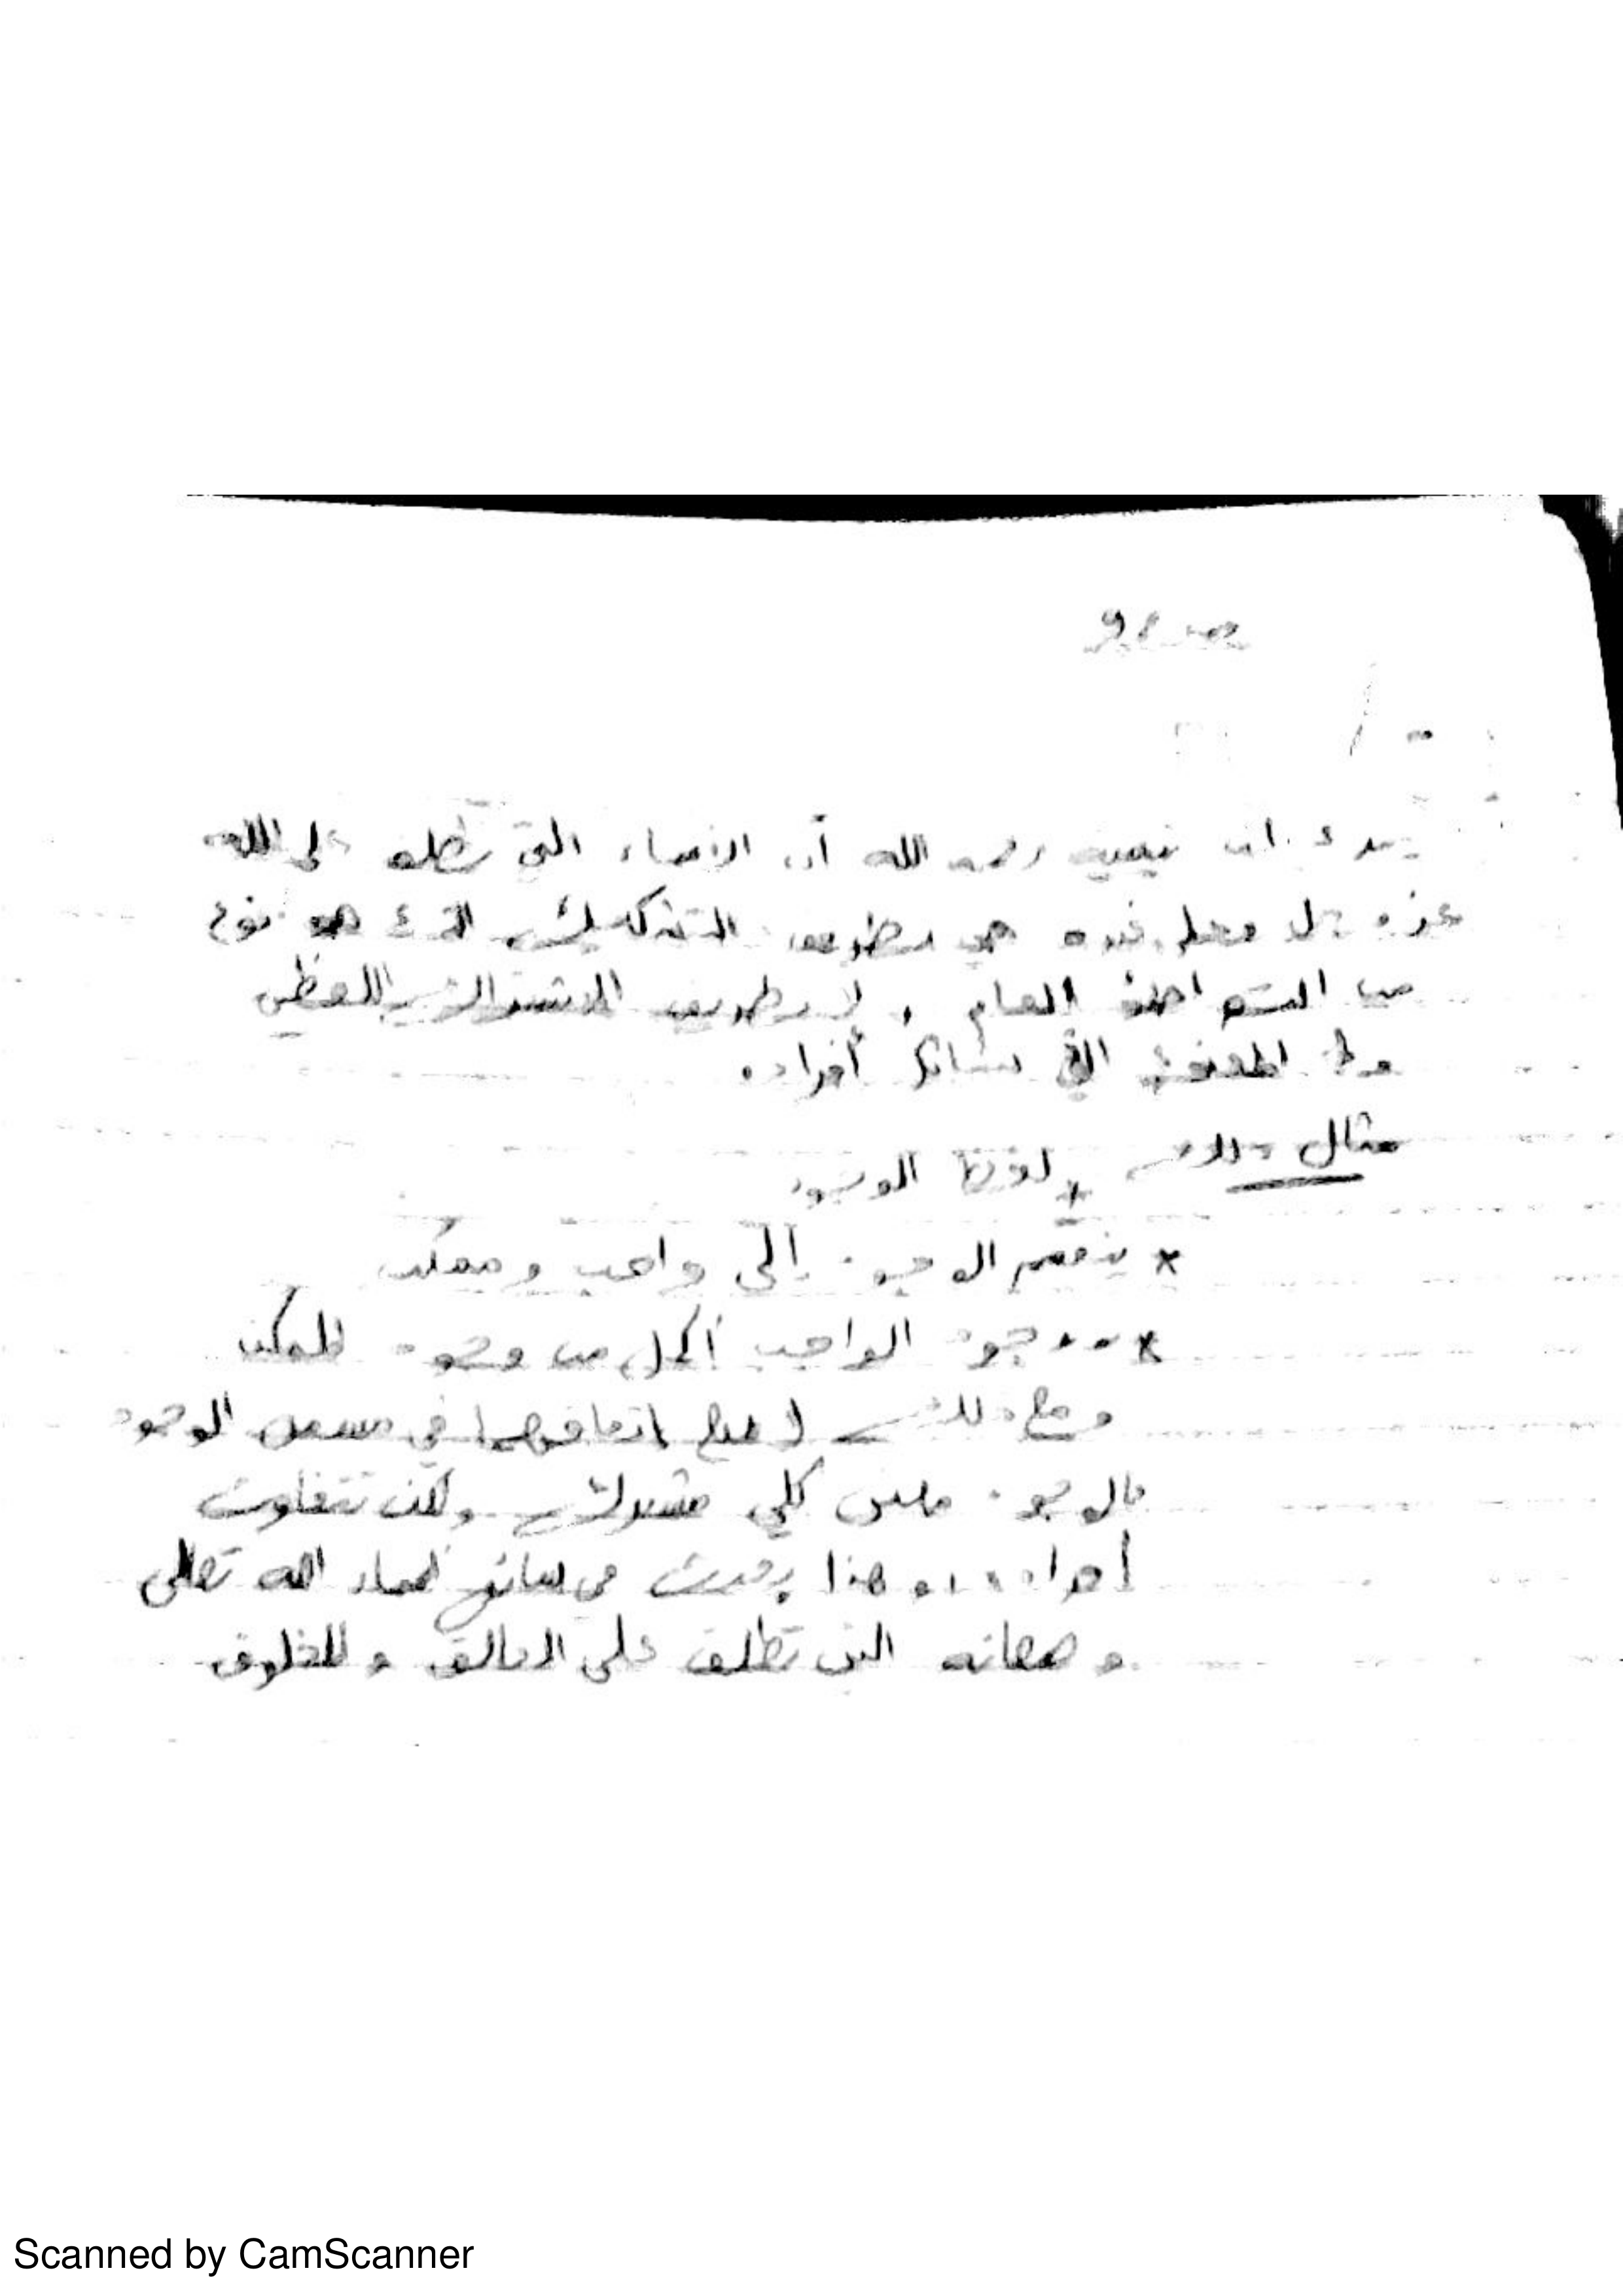 ابن تيمية رحمه الله أن الأسماء التي تطلق على الله
عز وجل وعلى غيره هي بطريق التشكيك الذي هو نوع
من المتواطئ العام , لا بطريق الاشتراك اللفظي
أفراده.
مثال ذلك * لفظ الوجود
* ينقسم الوجود إلى واجب وممكن
* وجود الواجب أكمل من وجود الممكن
ومع ذلك اتفاقهما في مسمى الوجود
فالوجود معنى كلي مشترك ولكن تتفاوت
أفراده وهذا في سائر أسماء الله تعالى
وصفاته التي تطلق على الخالق والمخلوق
Scanned by CamScanner